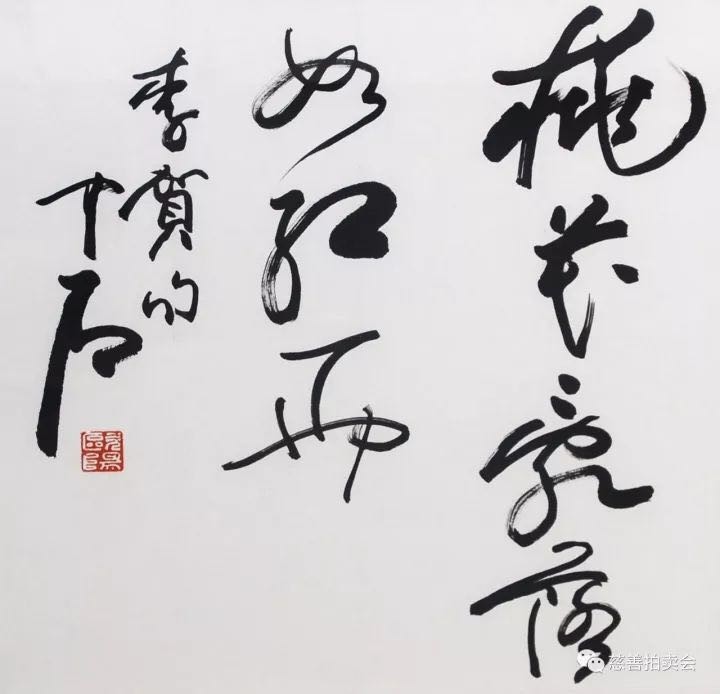 桃花亂落
如紅雨
李賀句
中石
慈善拍卖会